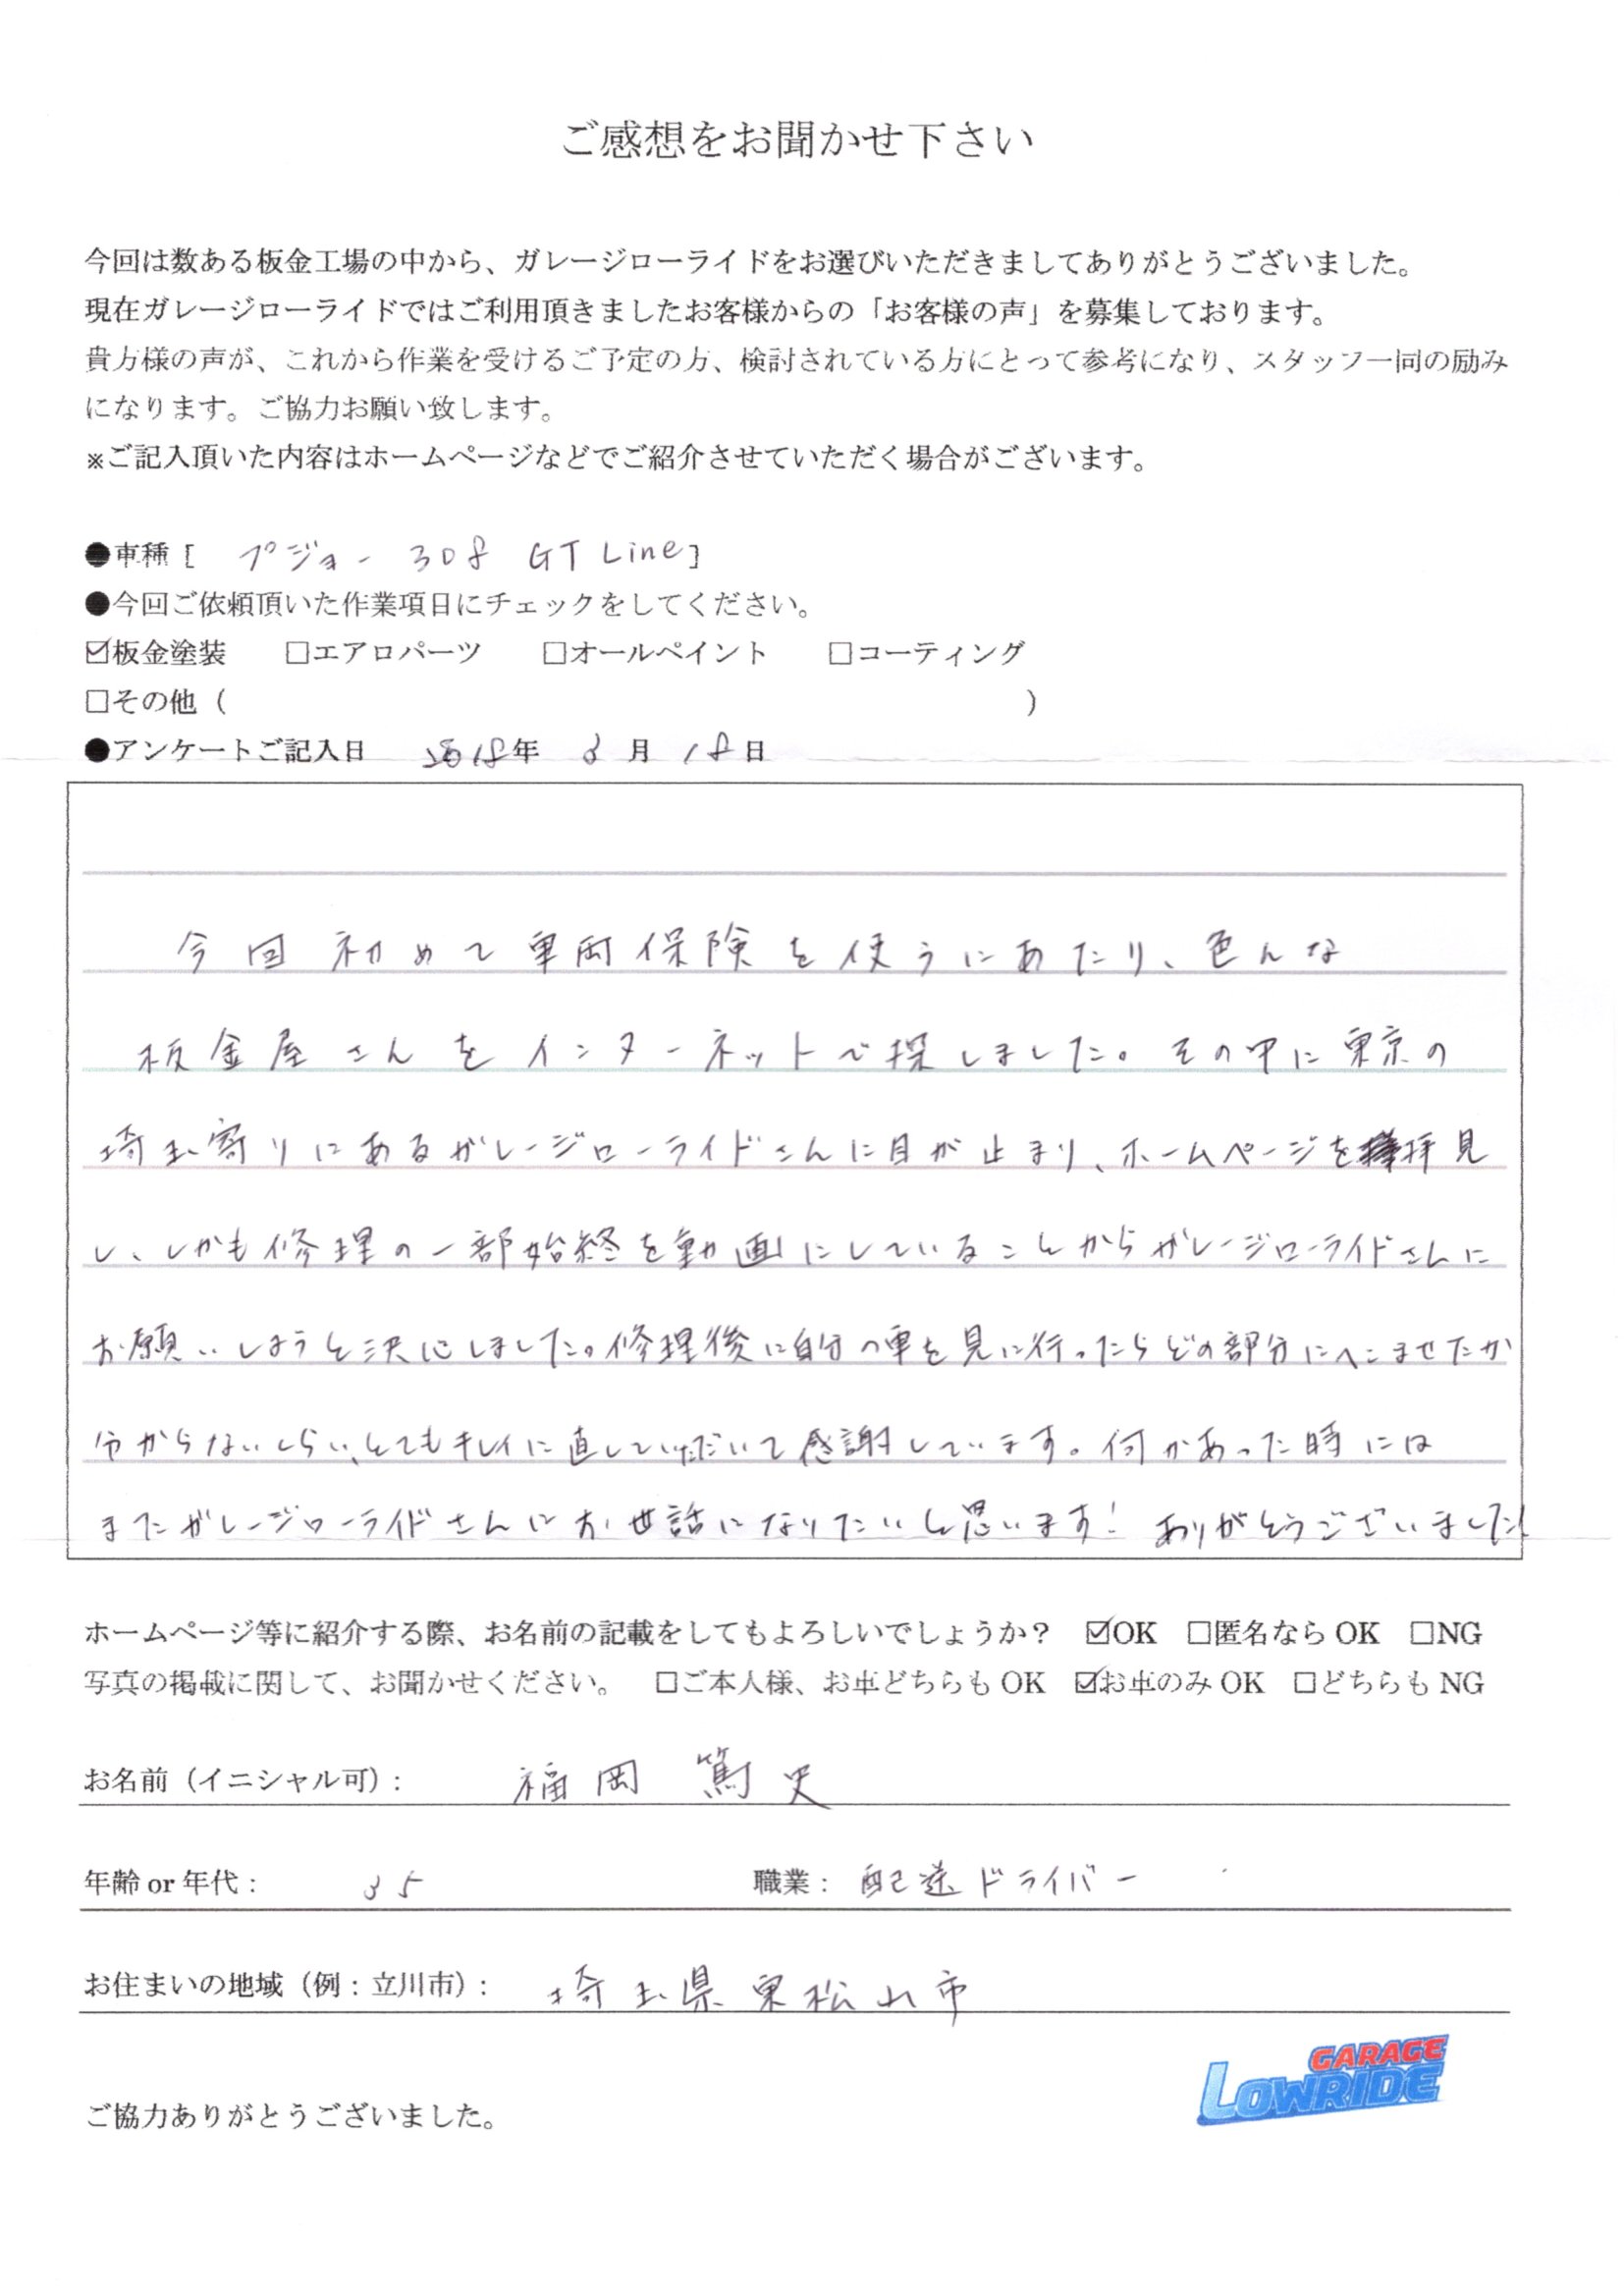 ご感想をお聞かせ下さい
今回は数ある板金工場の中から、ガレージローライドをお選びいただきましてありがとうございました。
現在ガレージローライドではご利用頂きましたお客様からの「お客様の声」を募集しております。
貴方様の声が、これから作業を受けるご予定の方、検討されている方にとって参考になり、スタッフ一同の励み
になります。ご協力お願い致します。
※ご記入頂いた内容はホームページなどでご紹介させていただく場合がございます。
●車種 [ プジョー 308 GT Line ]
●今回ご依頼頂いた作業項目にチェックをしてください。
☑板金塗装 □エアロパーツ □オールペイント □コーティング
□その他（ ）
●アンケートご記入日 2018年 3月 18日
今回初めて車両保険を使うにあたり、色んな
板金屋さんをインターネットで探しました。その中に東京の
埼玉寄りにあるガレージローライドさんに目が止まり、ホームページを拝見
し、しかも修理の一部始終を動画にしていることからガレージローライドさんに
お願いしようと決心しました。修理後に自分の車を見に行ったらどの部分にへこませたか
分からないくらい、とてもキレイに直していただいて感謝しています。何かあった時には
またガレージローライドさんにお世話になりたいと思います！ ありがとうございました！
ホームページ等に紹介する際、お名前の記載をしてもよろしいでしょうか？ ☑OK □匿名なら OK □NG
写真の掲載に関して、お聞かせください。 □ご本人様、お車どちらも OK ☑お車のみ OK □どちらも NG
お名前（イニシャル可）: 福岡 篤史
年齢 or 年代： 35 職業： 配送ドライバー
お住まいの地域（例：立川市）: 埼玉県東松山市
GARAGE
LOWRIDE
ご協力ありがとうございました。